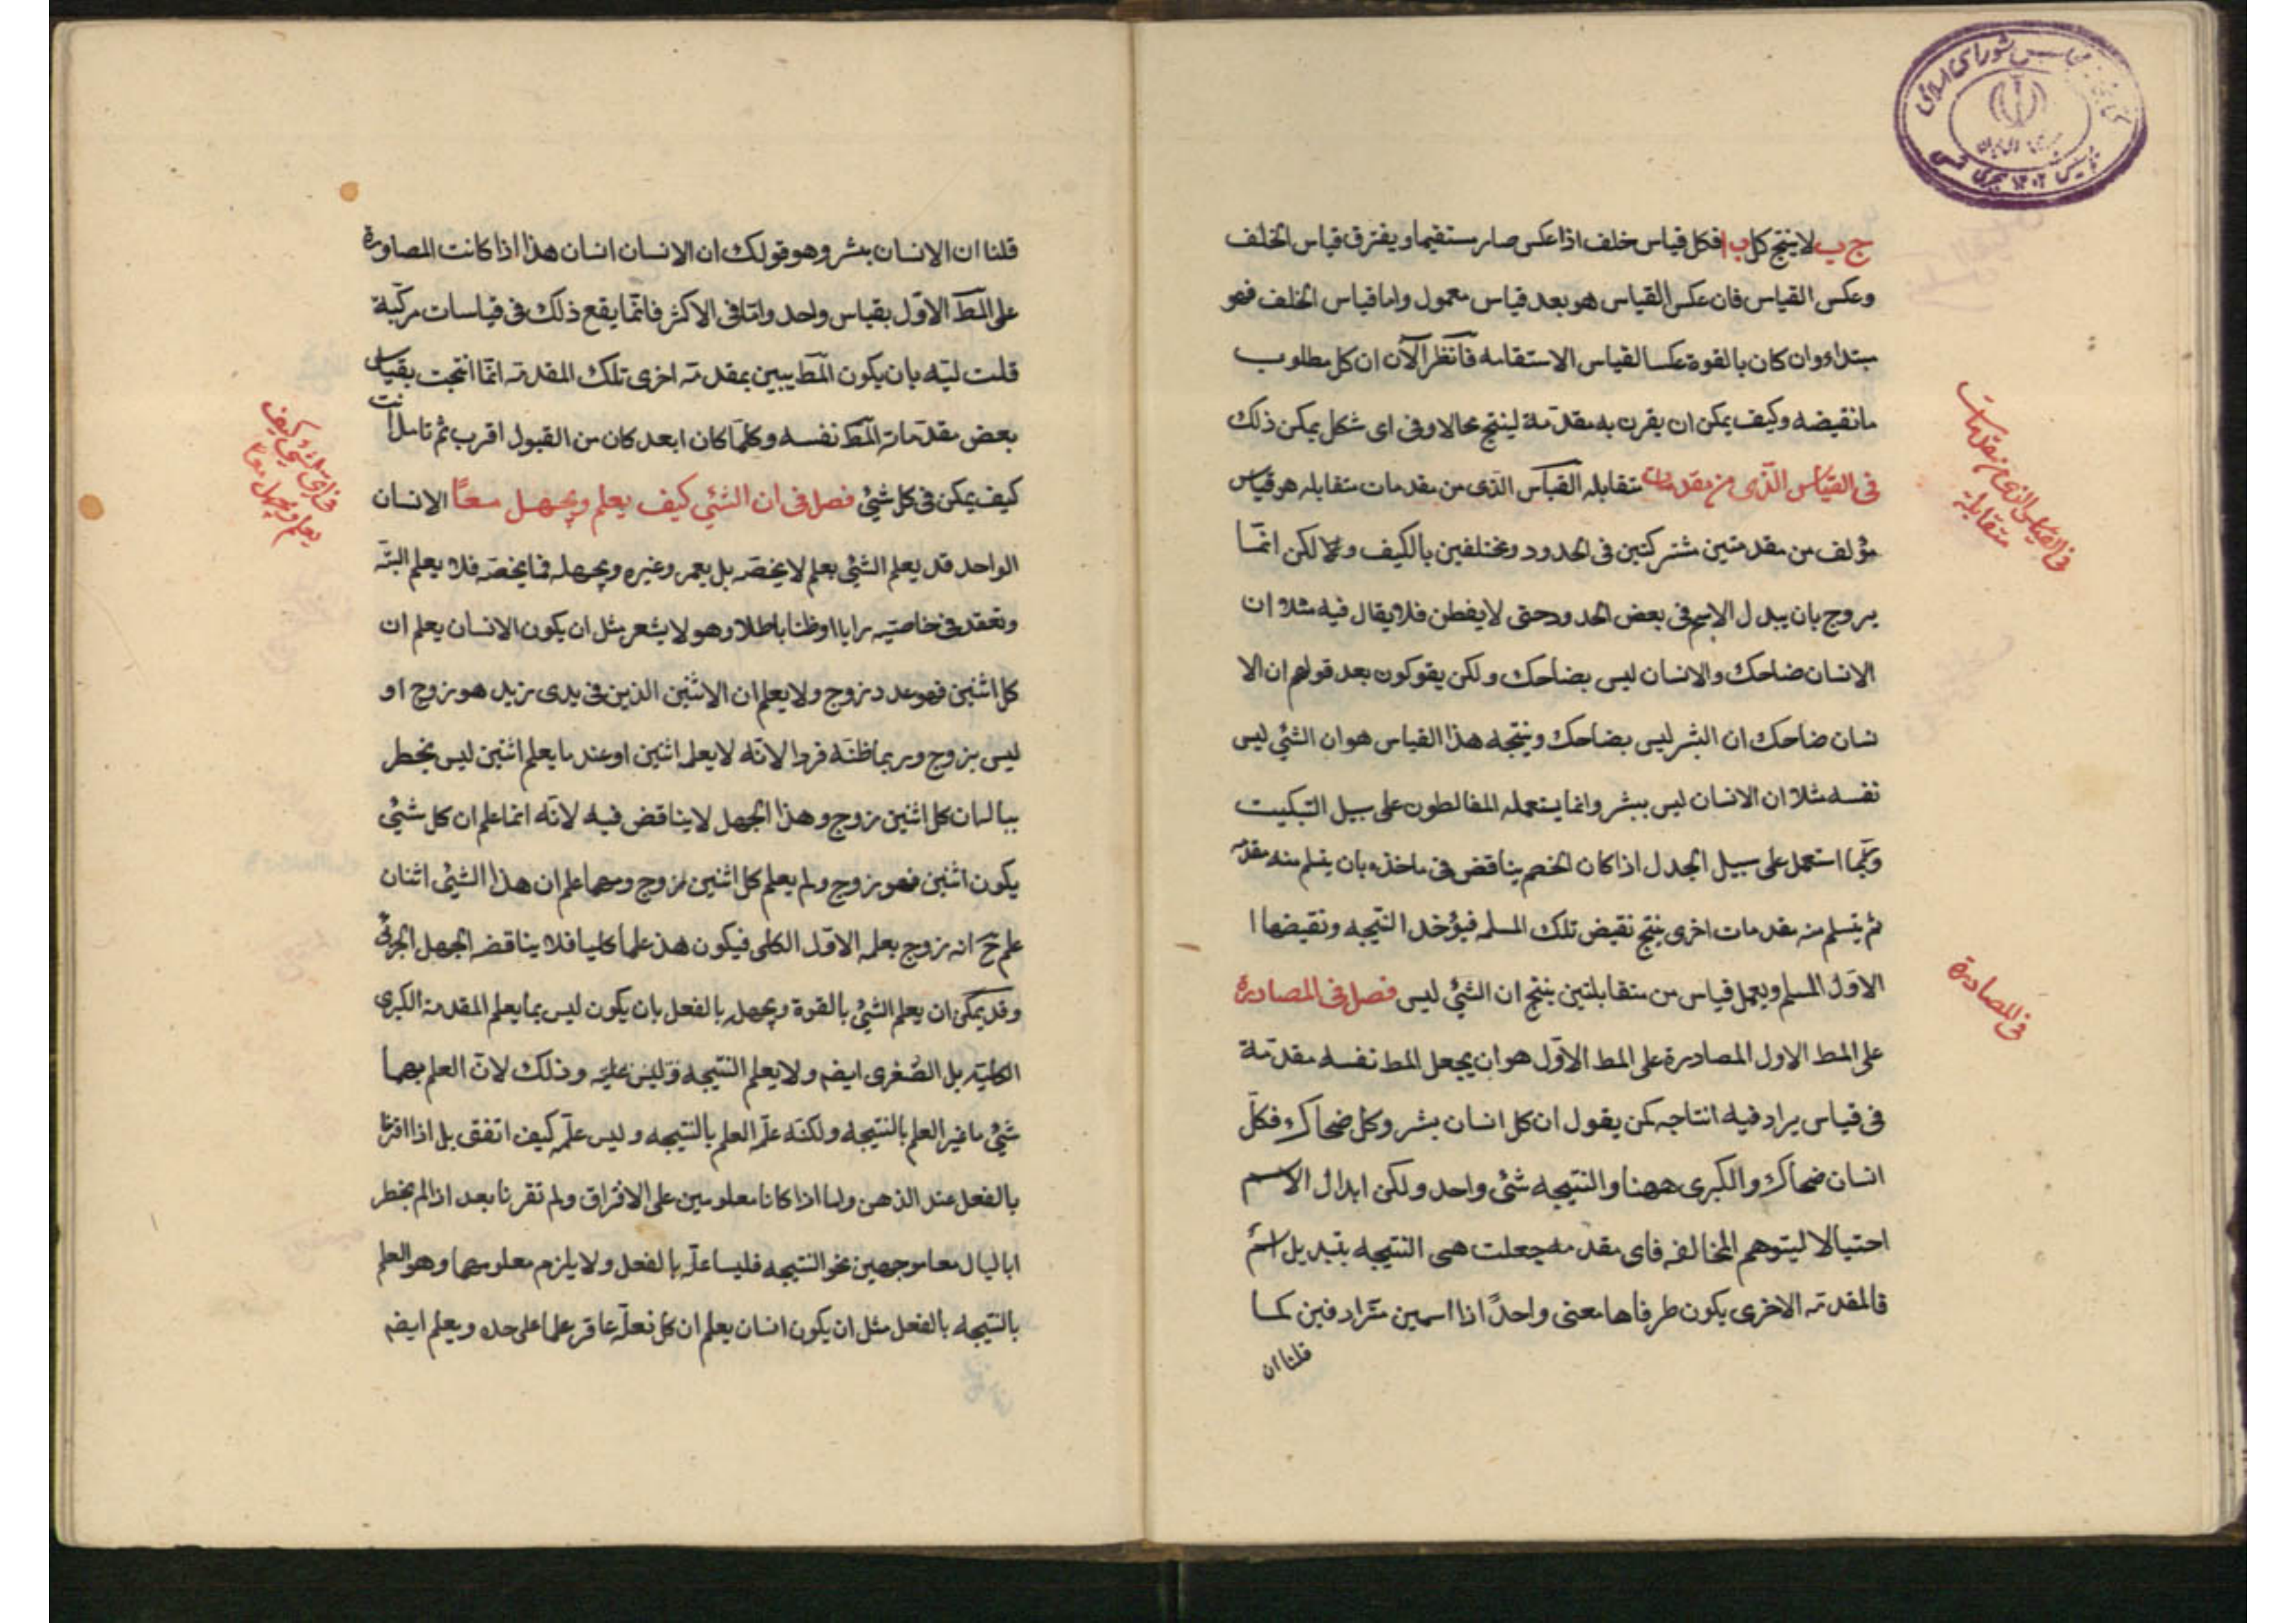 ج ب لا ينتج كل ب ا فكل قياس خلف اذا عكس صار مستقيما ويفترق قياس الخلف
وعكس القياس فان عكس القياس هو بعد قياس معمول واما قياس الخلف فهو
مبتداء وان كان بالقوة عكسا لقياس الاستقامه فانظر الآن ان كل مطلوب
ما نقيضه وكيف يمكن ان يقرن به مقدمة لينتج محالا وفى اى شكل يمكن ذلك
فى القياس الّذى من مقدمات متقابله القياس الذى من مقدمات متقابله هو قياس
مؤلف من مقدمتين مشتركتين فى الحدود ومختلفين بالكيف ولا لكن انمّا
يروج بان يبدل الاسم فى بعض الحدود حتى لا يفطن فلا يقال فيه مثلا ان
الانسان ضاحك والانسان ليس بضاحك ولكن يقوكون بعد قولهم ان الا
نسان ضاحك ان البشر ليس بضاحك ونتيجه هذا القياس هو ان الشئ ليس
نفسه مثلا ان الانسان ليس ببشر وانما يستعمله المغالطون على سبيل التبكيت
وربّما استعمل على سبيل الجدل اذا كان الخصم يناقض فى ماخذه بان يتسلم منه مقدمه
ثم يتسلم منه مقدمات اخرى ينتج نقيض تلك المسلمه فيؤخذ النتيجه ونقيضها ا
الاوّل المسلم ويعمل قياس من متقابلتين ينتج ان الشئ ليس فصل فى المصادرة
على المط الاول المصادرة على المط الاوّل هو ان يجعل المط نفسه مقدّمة
فى قياس يراد فيه انتاجه كمن يقول ان كل انسان بشر وكل بشر ضحاك فكلّ
انسان ضحاك والكبرى ههنا والنتيجه شئ واحد ولكن ابدال الاسم
احتيالا ليتوهم المخالفه فاى مقدمه جعلت هى النتيجه بتبديل اسم
فالمقدمه الاخرى يكون طرفاها معنى واحدً اذا اسمين مترادفين كما
قلنا ان
فى القياس الذى من مقدمات
متقابلة
فى المصادرة
قلنا ان الانسان بشر وهو قولك ان الانسان انسان هذا اذا كانت المصادرة
على المط الاوّل بقياس واحد وامّا فى الاكثر فانّما يقع ذلك فى قياسات مركّبة
بان يكون المط يبين بمقدمه اخرى تلك المقدمه انمّا انتجت بقياس
بعض مقدّماته المط نفسه وكلّما كان ابعد كان من القبول اقرب ثم تامل انت
كيف يمكن فى كل شئ فصل فى ان الشئ كيف يعلم ويجهل معًا الانسان
الواحد قد يعلم الشئ بعلم لا يخصّه بل يعمه وغيره ويجهله فما يخصّه فلا يعلم البتّه
وتعقد فى خاصتيه رايا او ظنا باطلا وهو لا يشعر مثل ان يكون الانسان يعلم ان
كل اثنين فهو عدد زوج ولا يعلم ان الاثنين الذين فى يدى زيد هو زوج او
ليس بزوج وربما ظنّه فردا لانّه لا يعلمه اثنين او عند ما يعلم اثنين ليس يخطر
بباله ان كل اثنين زوج وهذا الجهل لا يناقض فيه لانّه انما علم ان كل شئ
يكون اثنين فهو زوج ولم يعلم كل اثنين زوج ومهما علم ان هذا الشئ اثنان
علم ح انه زوج بعلمه الاوّل الكلى فيكون هذ علما كليا فلا يناقضه الجهل الجزئى
وقد يمكن ان يعلم الشئ بالقوة ويجهله بالفعل بان يكون ليس بما يعلم المقدمة الكبرى
الكليّه بل الصُغرى ايضه ولا يعلم النتيجه وذلك لانّ العلم بهما
شئ ما غير العلم بالنتيجه ولكنّه علّه العلم بالنتيجه وليس علّه كيف اتفق بل اذا اقترنا
بالفعل عند الذهن واما اذا كانا معلومين على الافتراق ولم تقرنا بعد اذا لم يخطر
ابالبال معا موجهين نحو النتيجه فليسا علّه بالفعل ولا يلزم معلومهما وهو العلم
بالنتيجه بالفعل مثل ان يكون انسان يعلم ان كل بغله عاقر علما على حده ويعلم ايضه
كيف
يعلم ويجهل معا